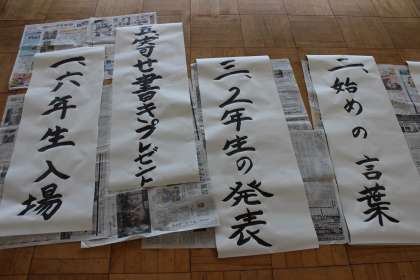 一、六年生入場
五、寄せ書きプレゼント
三、2年生の発表
二、始めの言葉